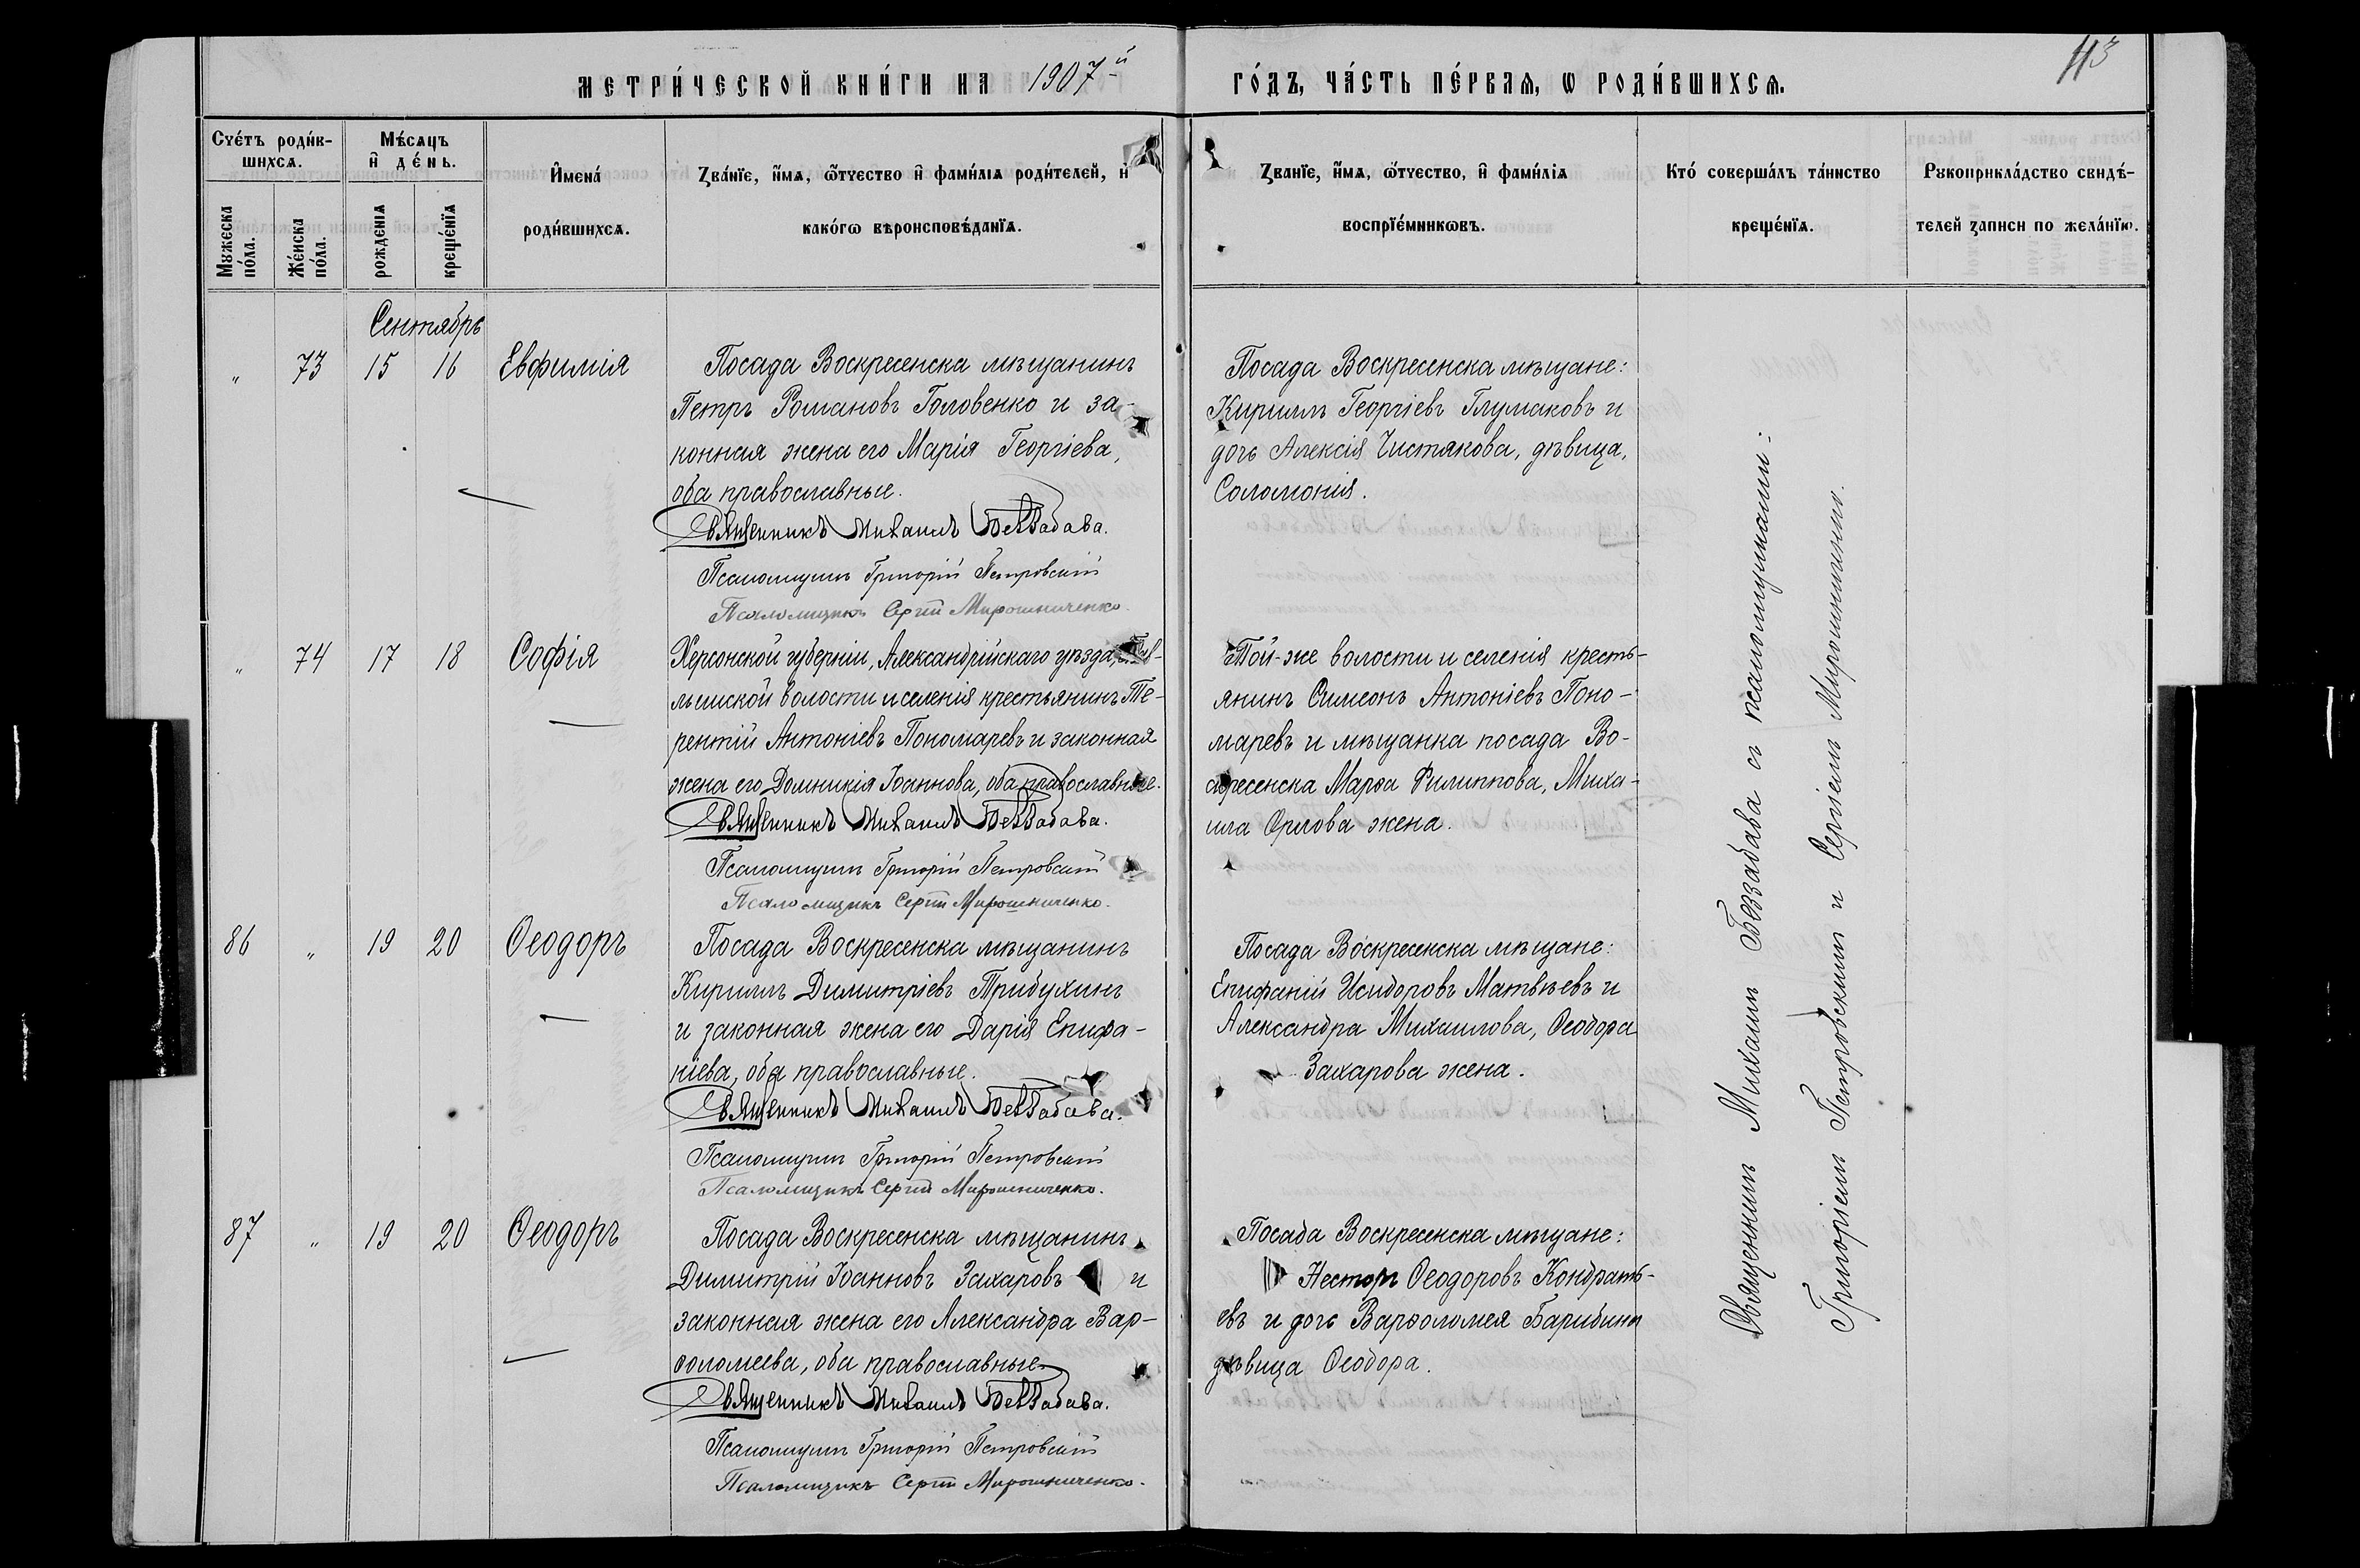 МЕТРИ́ЧЕСКОЙ КНИ́ГИ НА 1907й
ГО́ДЪ, ЧА́СТЬ ПЕ́РВАѦ, Ѡ РОДИ́ВШИХСѦ.
Счéтъ роди́в-
шихсѧ.
Мужеска по́ла.
Же́нска по́ла.
Мѣ́сѧцъ
и҆ де́нь.
рожденїѧ
креще́нїѧ
И҆мена́
роди́вшихсѧ.
Зва́нїе, и҆́мѧ, ѻ҆́тчество и҆ фами́лїѧ роди́телей, и҆
како́гѡ вѣроисповѣ́данїѧ.
Званїе, и҆́мѧ, ѻ҆́тчество, и҆ фами́лїѧ
воспрїе́мникѡвъ.
Кто́ соверша́лъ та́инство
креще́нїѧ.
Рукоприкла́дство свидѣ́-
телей записи по жела́нїю.
Сентябрь
„ 73 15 16 Евфимія
Посада Воскресенска мѣщанинъ
Петръ Романовъ Головенко и за-
конная жена его Марія Георгіева,
оба православные.
Священникъ Михаилъ Беззабава.
Псаломщикъ Григорій Петровскій
Псаломщикъ Сергій Мирошниченко.
Посада Воскресенска мѣщане:
Кириллъ Георгіевъ Глумаковъ и
дочь Алексія Чистякова, дѣвица,
Соломонія.
„ 74 17 18 Софія
Херсонской губерніи, Александрійскаго уѣзда,
волости и селенія крестьянинъ Те-
рентій Антоніевъ Пономаревъ и законная
жена его Домникія Іоаннова, оба православные.
Священникъ Михаилъ Беззабава.
Псаломщикъ Григорій Петровскій
Псаломщикъ Сергій Мирошниченко.
Той-же волости и селенія кресть-
янинъ Симеонъ Антоніевъ Поно-
маревъ и мѣщанка посада Во-
скресенска Марѳа Филиппова, Миха-
ила Орлова жена.
86 „ 19 20 Ѳеодоръ
Посада Воскресенска мѣщанинъ
Кириллъ Димитріевъ Трибухинъ
и законная жена его Дарія Епифа-
ніева, оба православные.
Священникъ Михаилъ Беззабава.
Псаломщикъ Григорій Петровскій
Псаломщикъ Сергій Мирошниченко.
Посада Воскресенска мѣщане:
Епифаній Исидоровъ Матвѣевъ и
Александра Михаилова, Ѳеодора
Захарова жена.
87 „ 19 20 Ѳеодоръ
Посада Воскресенска мѣщанинъ
Димитрій Іоанновъ Захаровъ и
законная жена его Александра Вар-
ѳоломеева, оба православные.
Священникъ Михаилъ Беззабава.
Псаломщикъ Григорій Петровскій
Псаломщикъ Сергій Мирошниченко.
Посада Воскресенска мѣщане:
Несторъ Ѳеодоровъ Кондрать-
евъ и дочь Варѳоломея Барибина
дѣвица Ѳеодора.
Священникъ Михаилъ Беззабава съ псаломщиками:
Григоріемъ Петровскимъ и Сергіемъ Мирошниченко.